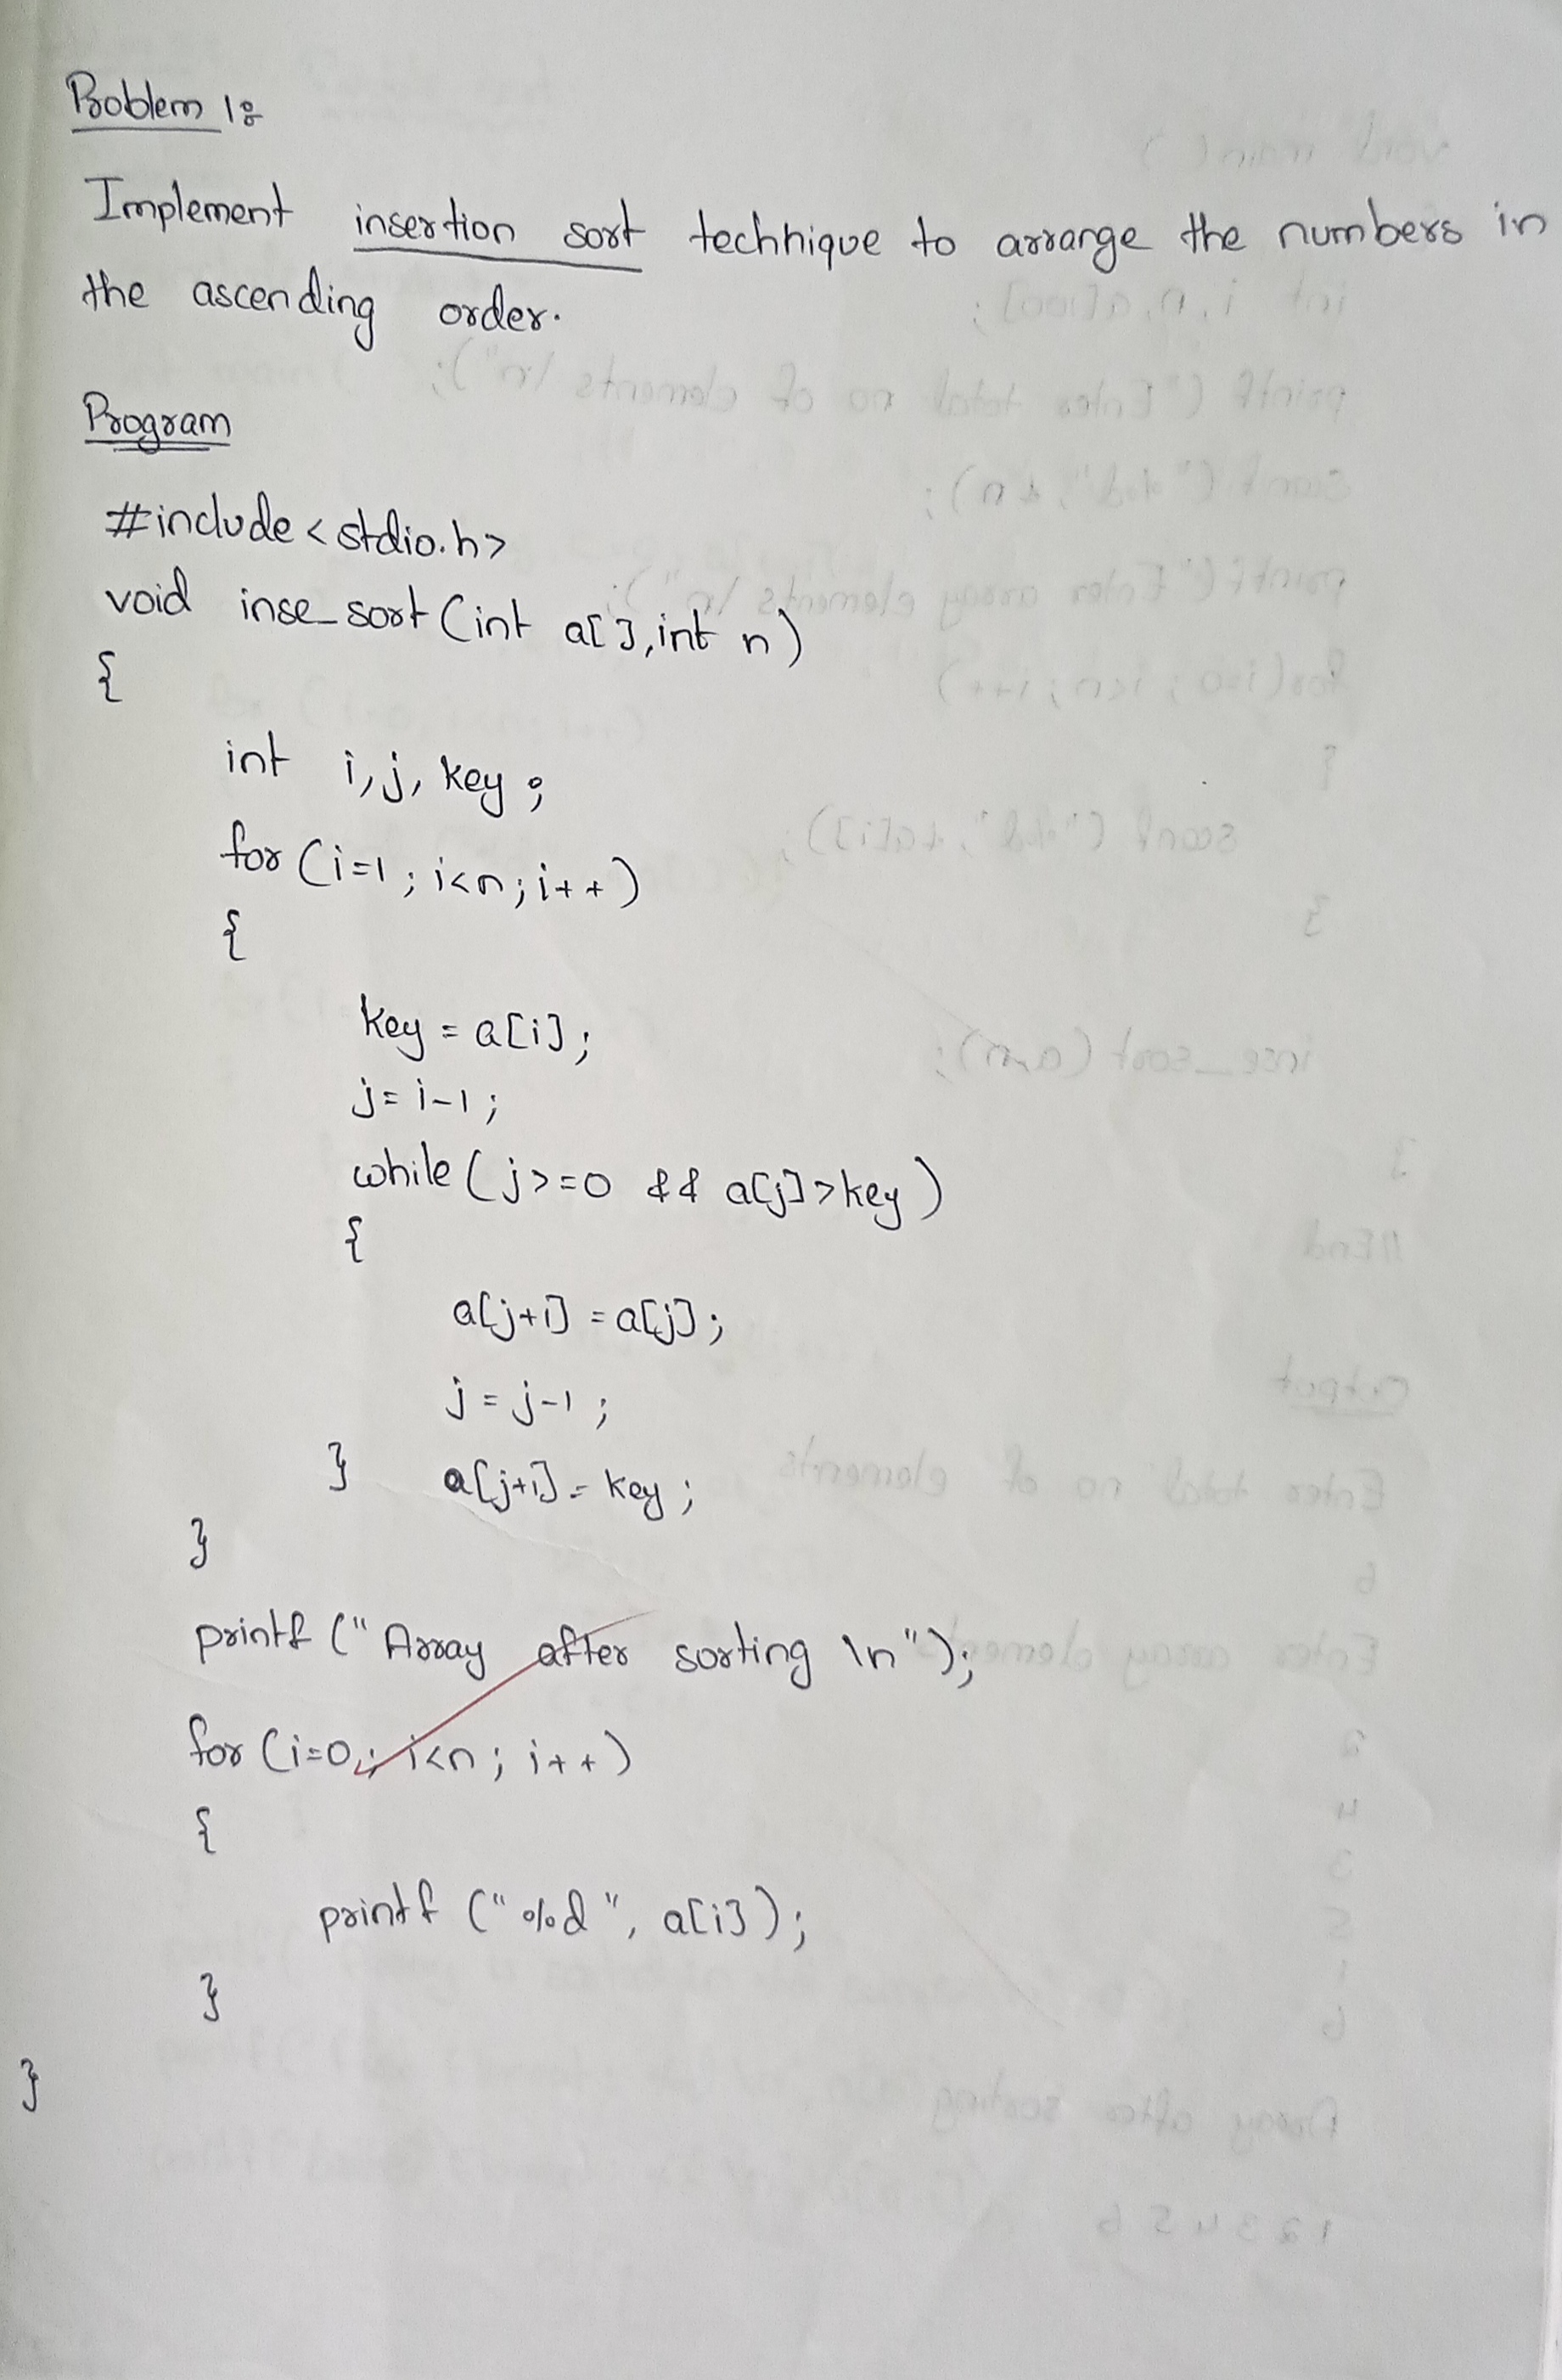 Problem 1:
Implement insertion sort technique to arrange the numbers in
the ascending order.
Program
#include<stdio.h>
void inse_sort(int a[],int n)
{
int i,j,key;
for(i=1;i<n;i++)
{
key=a[i];
j=i-1;
while(j>=0 && a[j]>key)
{
a[j+1]=a[j];
j=j-1;
} a[j+1]=key;
}
printf("Array after sorting \n");
for(i=0;i<n;i++)
{
printf("%d",a[i]);
}
}